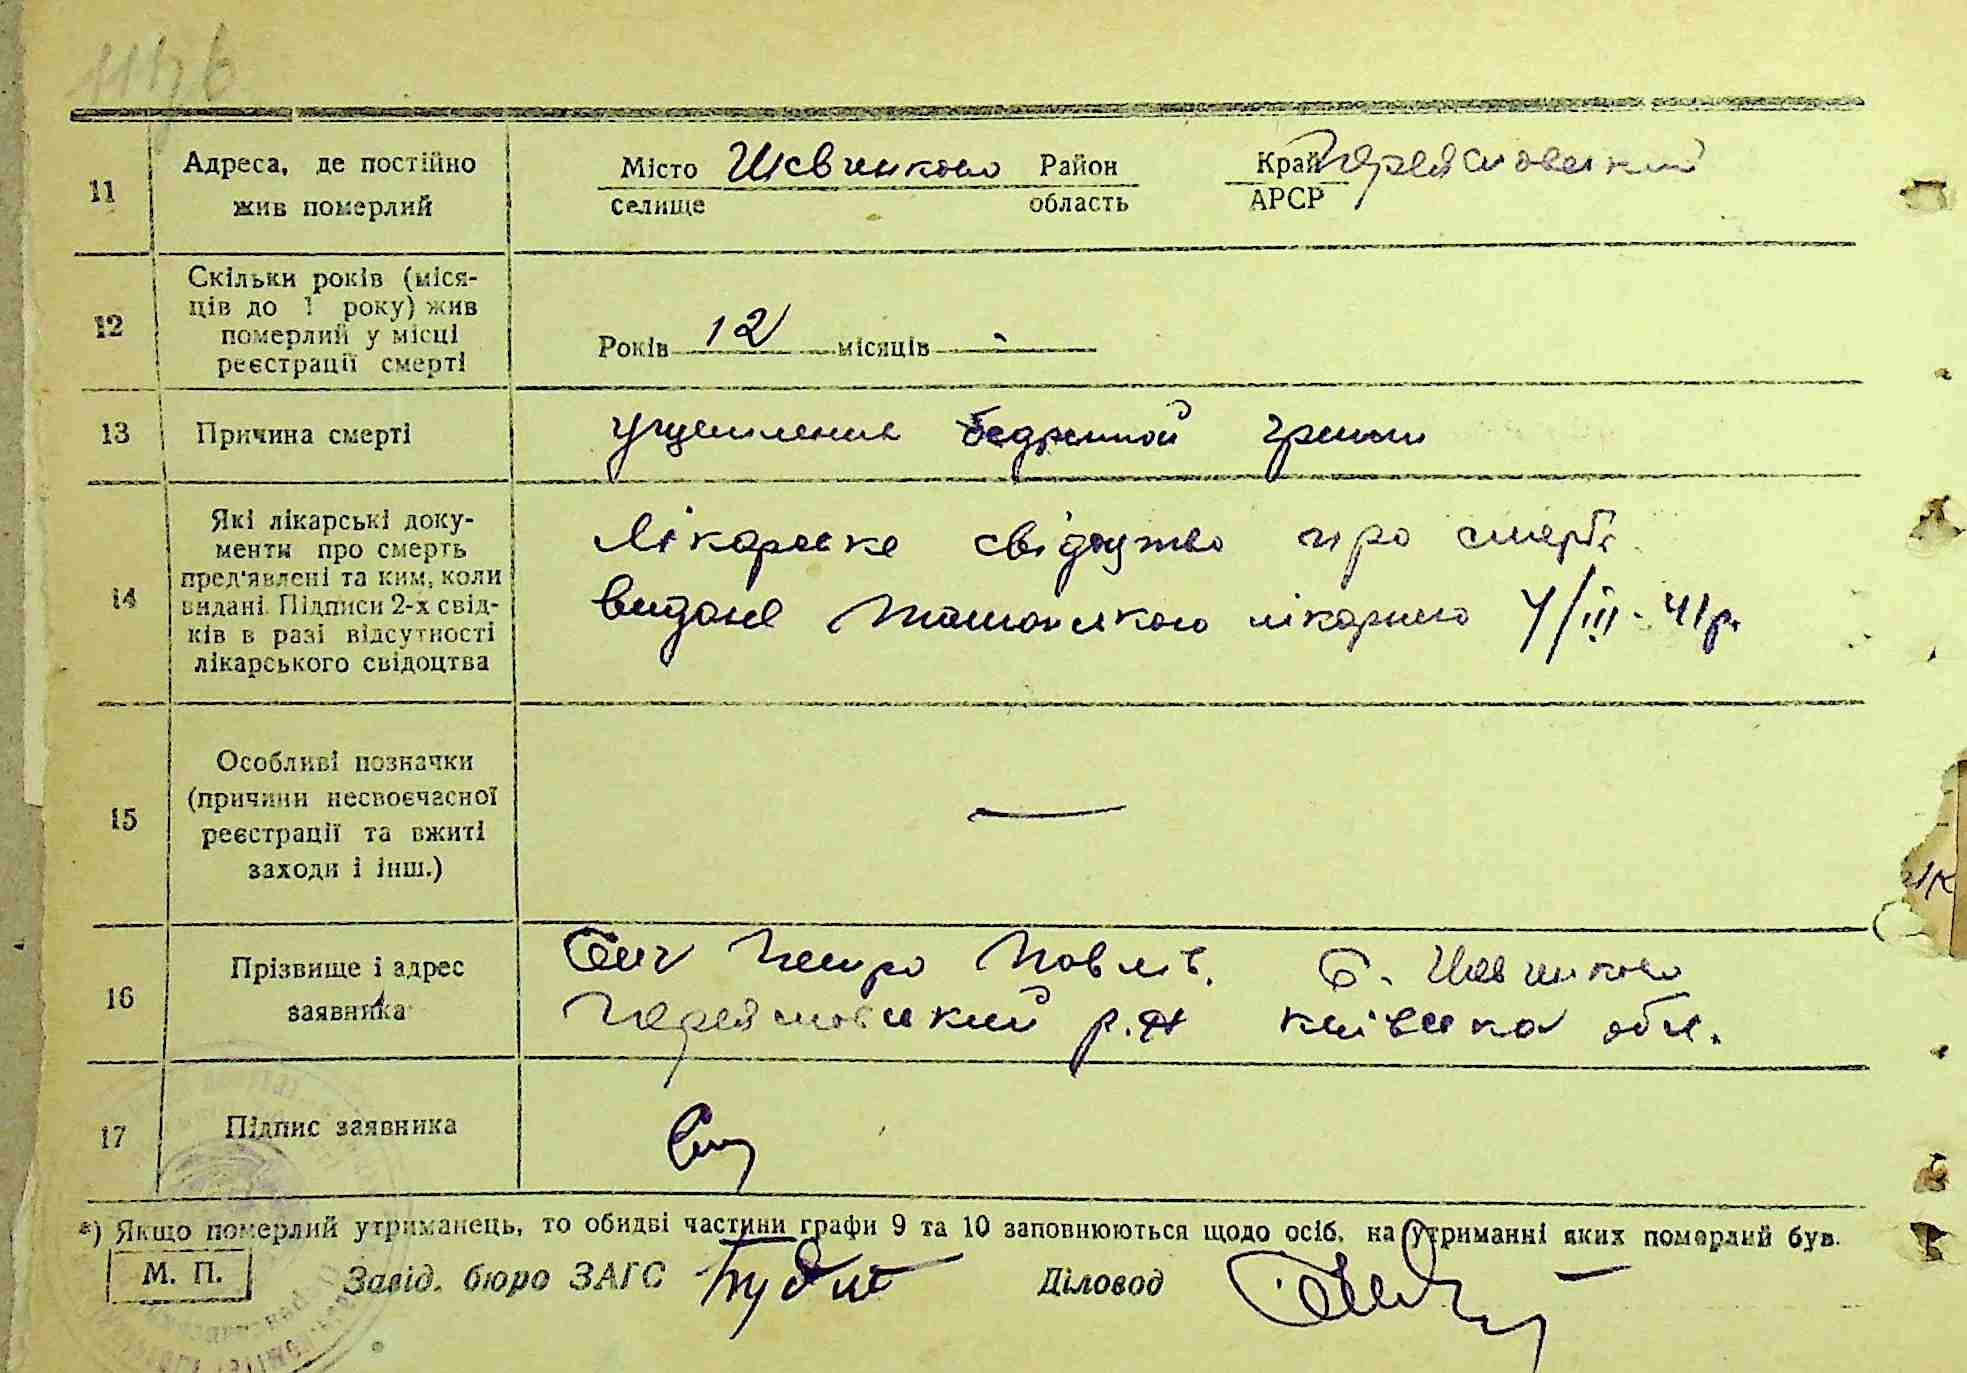 11
Адреса, де постійно
жив померлий
Місто Шевченково Район Край Переяславский
селище область АРСР
12
Скільки років (міся-
ців до 1 року) жив
померлий у місці
реєстрації смерті
Років 12 місяців -
13
Причина смерті
ущемление бедренной грыжи
14
Які лікарські доку-
менти про смерть
пред'явлені та ким, коли
видані. Підписи 2-х свід-
ків в разі відсутності
лікарського свідоцтва
Лікарске свідоцтво про смерть
видане лікарнею 7/III-41р.
15
Особливі позначки
(причини несвоєчасної
реєстрації та вжиті
заходи і інш.)
—
16
Прізвище і адрес
заявника
Петро Павлів. С. Шевченково
Переяславский р.н Київска обл.
17
Підпис заявника
*) Якщо померлий утриманець, то обидві частини графи 9 та 10 заповнюються щодо осіб, на утриманні яких померлий був.
М. П.
Завід. бюро ЗАГС
Діловод